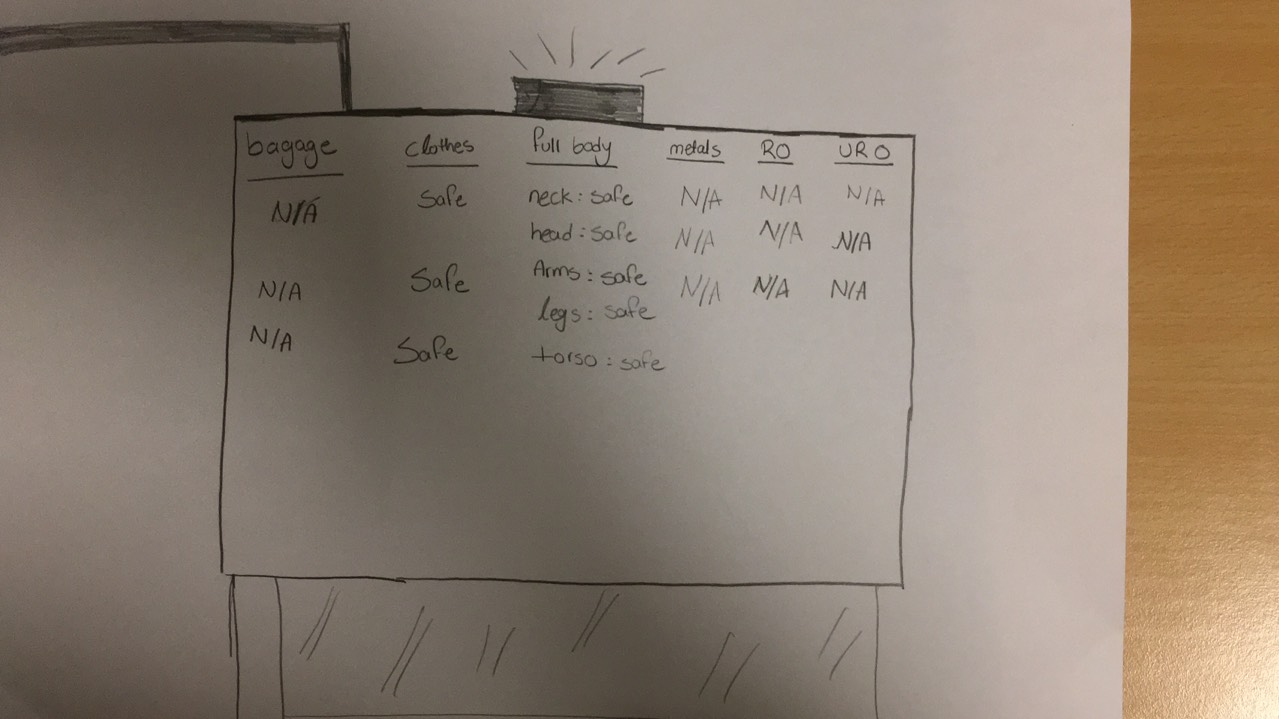 bagage clothes full body metals RO URO
N/A Safe neck : safe N/A N/A N/A
head : safe N/A N/A N/A
N/A Safe Arms : safe N/A N/A N/A
legs : safe
N/A Safe torso : safe